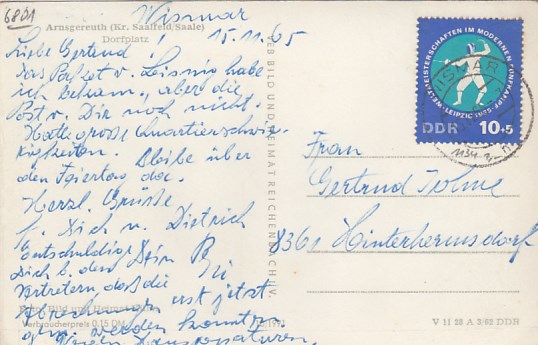 6801
Wismar
Arnsgereuth (Kr. Saalfeld/Saale)
Dorfplatz
15.11.65
Liebe Gertrud!
Das Paket v. Leipzig habe
ich bekom., aber die
Post v. Dir noch nicht.
Hatte große Quartierschwie-
rigkeiten. Bleibe über
den Feiertag da.
Herzl. Grüße
f. Dich u. Dietrich
Entschuldige Dein
Dich b. den
Vertretern daß die
Abrechnungen erst jetzt
werden konnten.
Bild und Heimat
Verbraucherpreis 0,15 DM
BILD UND HEIMAT REICHENBACH I. V.
WELTMEISTERSCHAFTEN IM MODERNEN FÜNFKAMPF
LEIPZIG 1965
DDR 10+5
WISMAR
Frau
Gertrud
8361 Hinterhermsdorf
V 11 28 A 3/62 DDR